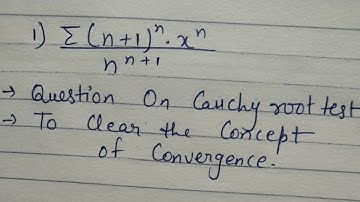 1) Σ (n+1)ⁿ · xⁿ
nⁿ⁺¹
→ Question On Cauchy root test
→ To Clear the Concept
of Convergence.